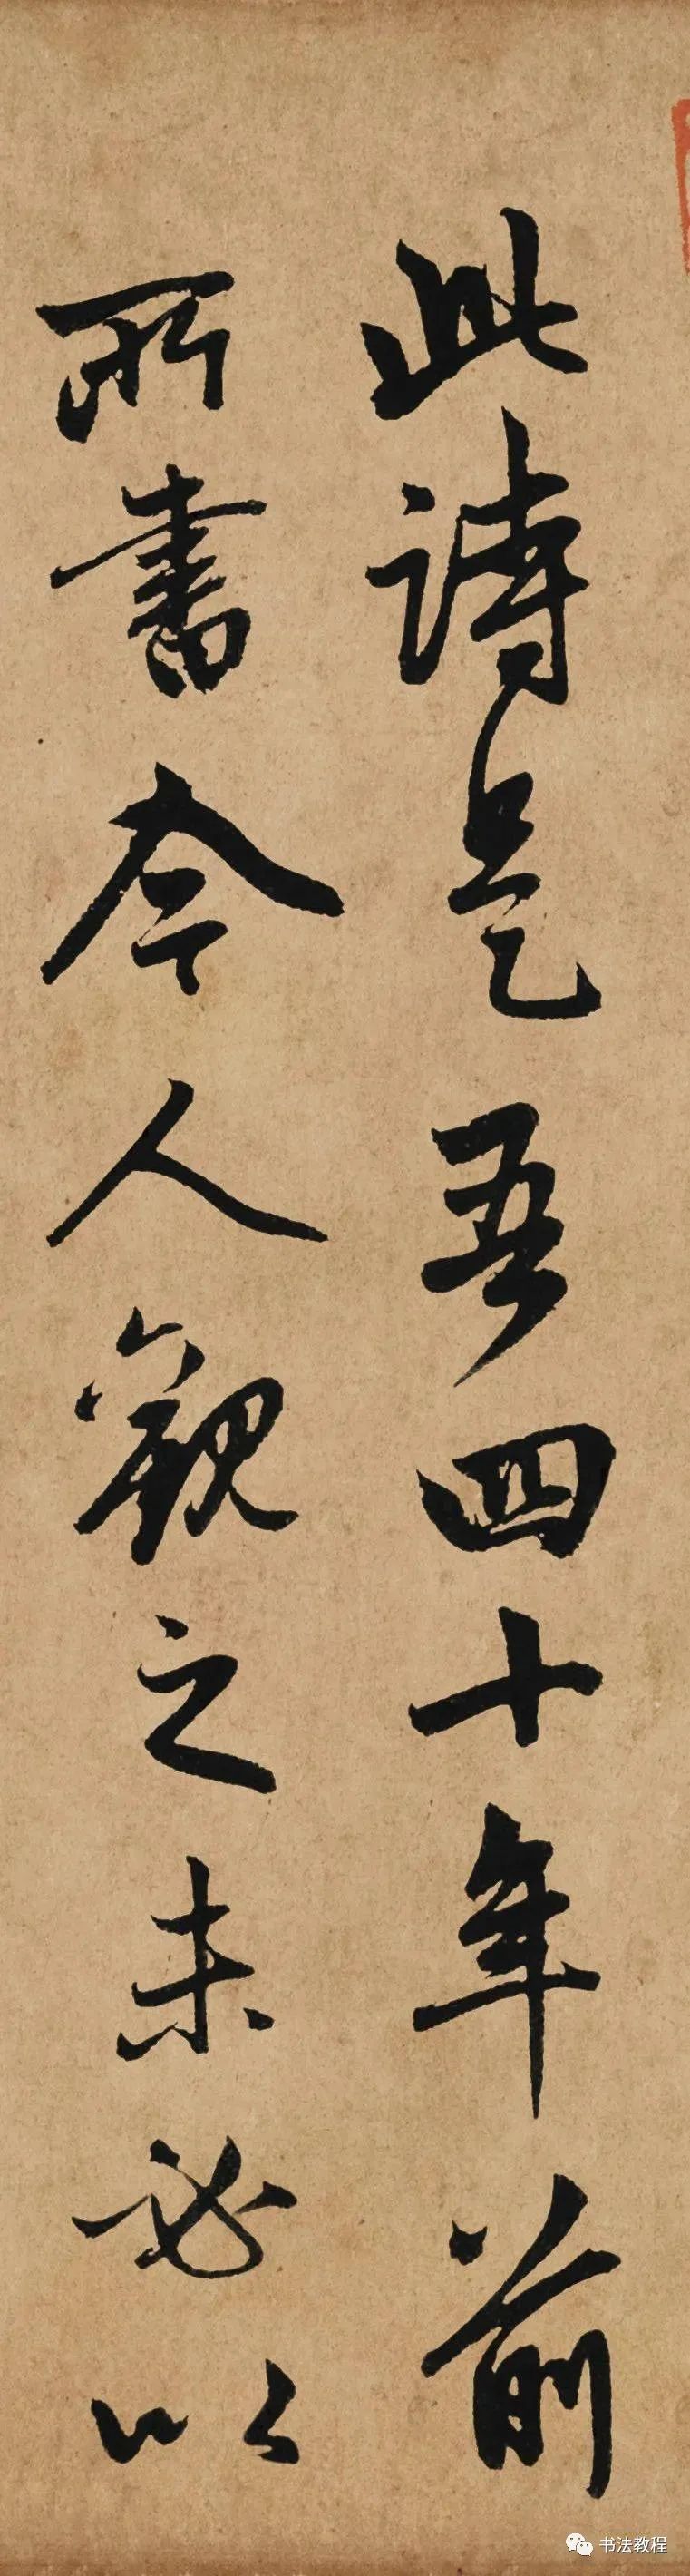 此詩是吾四十年前
所書今人觀之未必以
书法教程